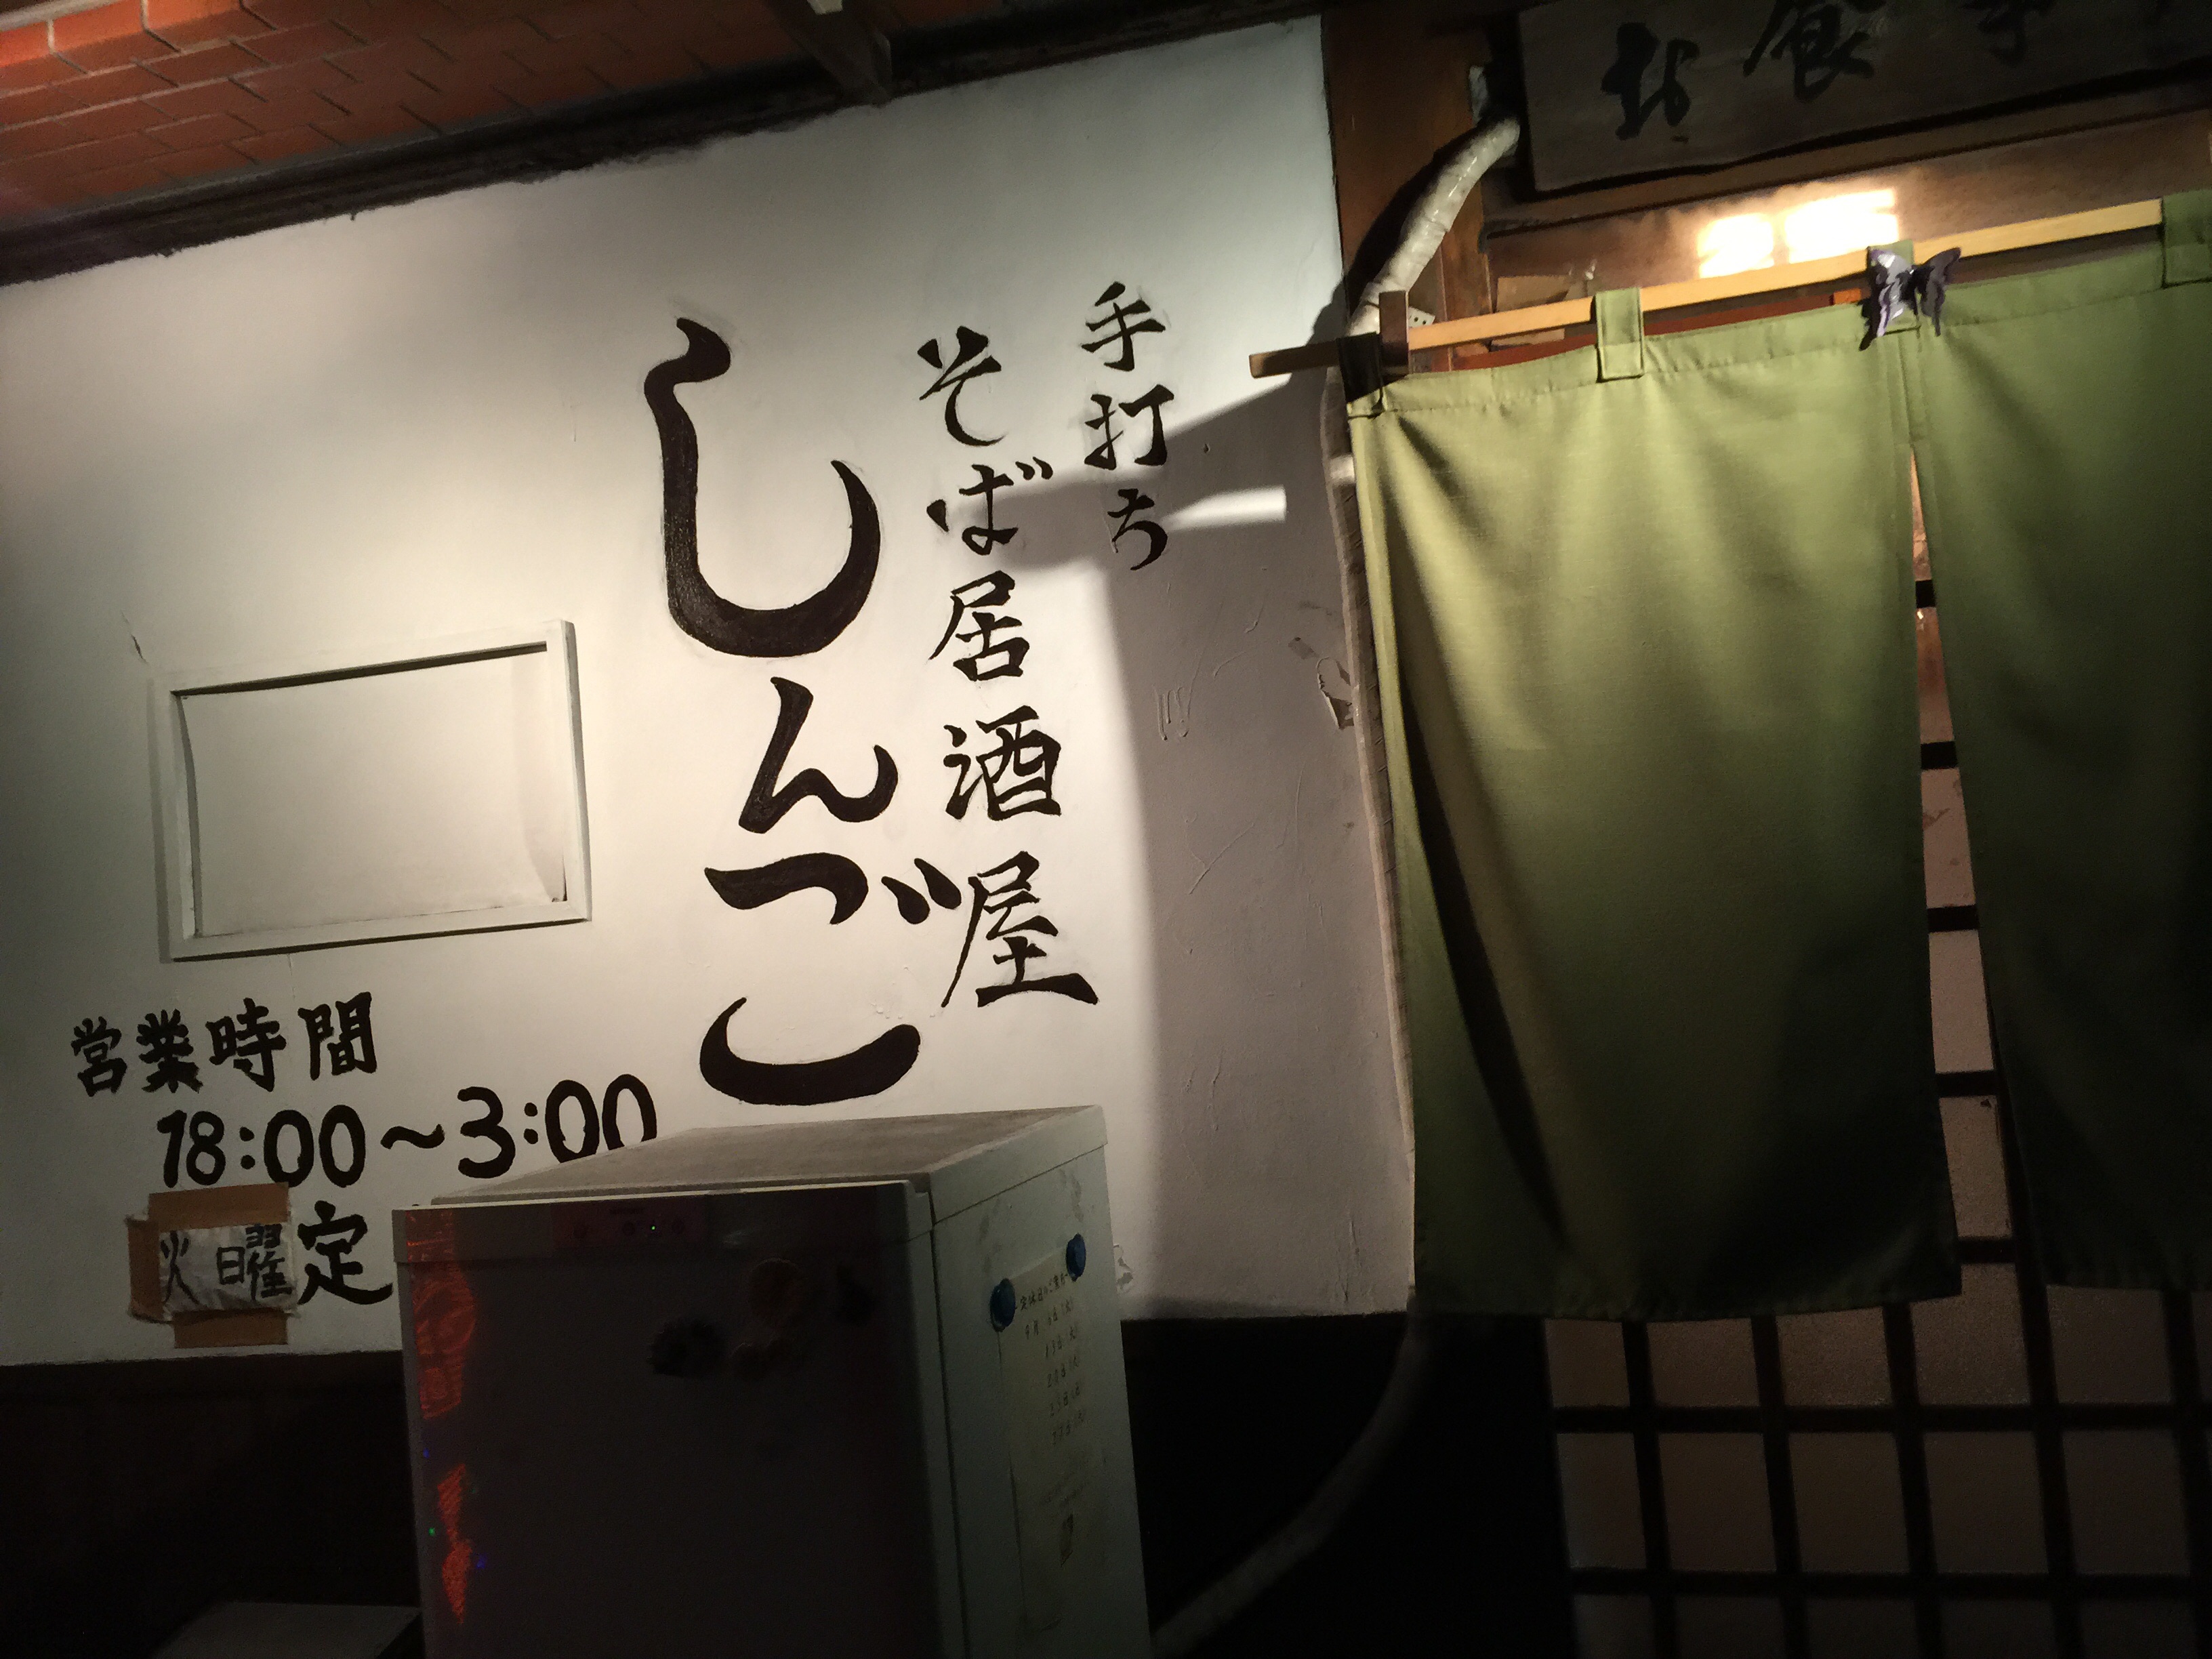 お食事
手打ち
そば居酒屋
しんご
営業時間
18:00～3:00
火曜定